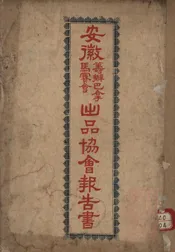 安徽
籌辦巴拿
馬賽會
出品協會報告書